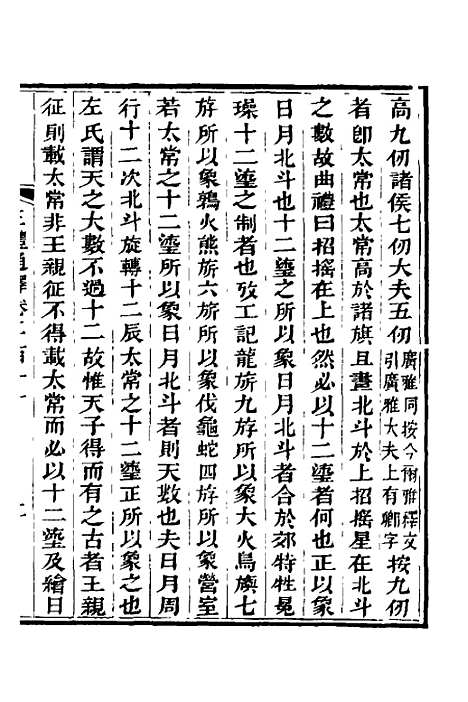 高九仞諸侯七仞大夫五仞廣雅同按今爾雅釋文引廣雅大夫上有卿字按九仞
者卽太常也太常高於諸旗且畫北斗於上招搖星在北斗
之數故曲禮曰招搖在上也然必以十二旒者何也正以象
日月北斗也十二旒之象日月北斗者合於郊特牲冕
璪十二旒之制者也攷工記龍旂九斿所以象大火鳥旟七
斿所以象鶉火熊旂六斿所以象伐龜蛇四斿所以象營室
若太常之十二旒所以象日月北斗者則天數也夫日月周
行十二次北斗旋轉十二辰太常之十二旒正所以象之也
左氏謂天之大數不過十二故惟天子得而有之古者王親
征則載太常非王親征不得載太常而必以十二旒及繪日
三禮通釋卷二百十一